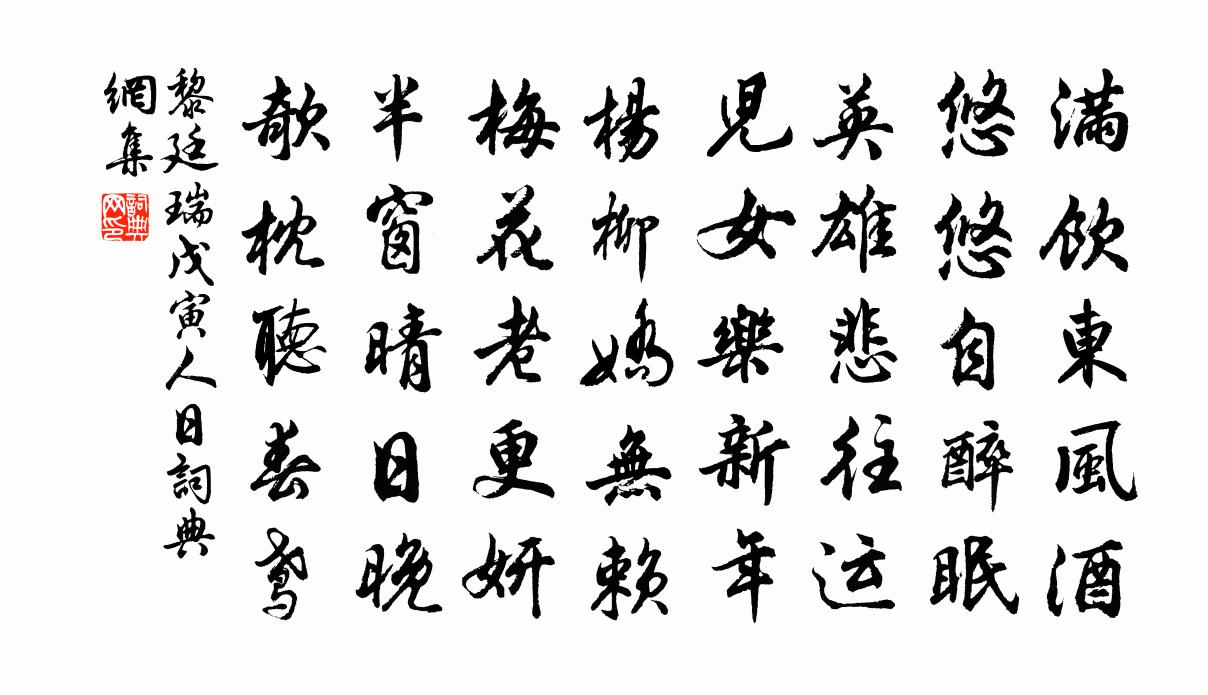 滿飲東風酒
悠悠自醉眠
英雄悲往运
兒女樂新年
楊柳嬌無賴
梅花老更妍
半窗晴日晚
欹枕聽春鳶
黎廷瑞戊寅人日詞典
網集
詞典
网印